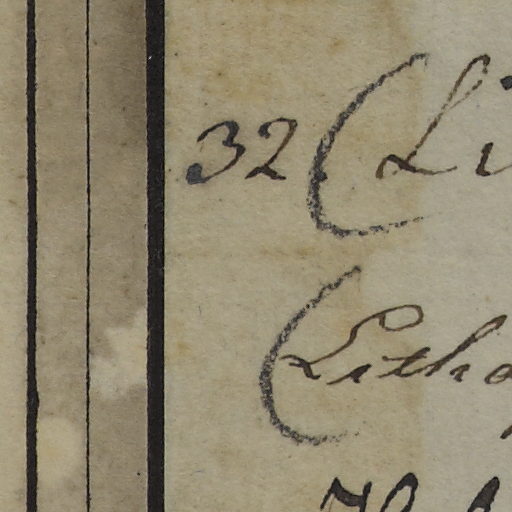 32 (Li
(Litho